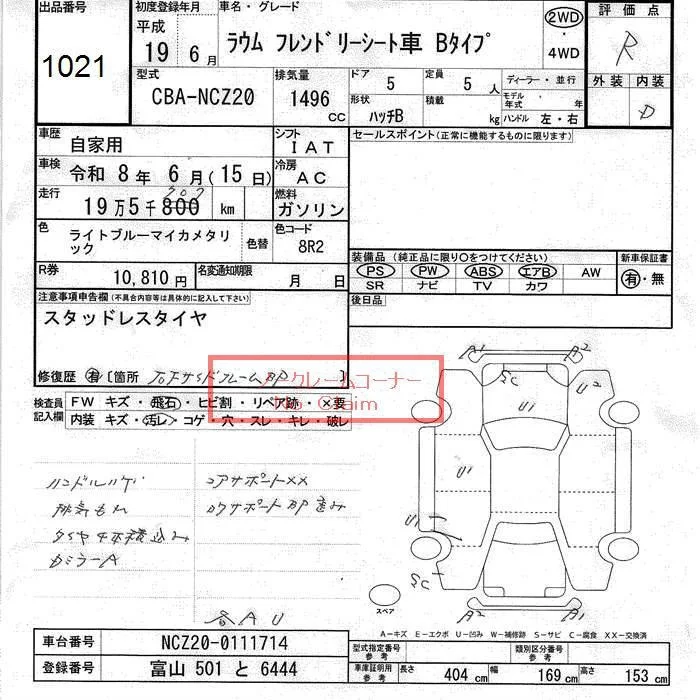 出品番号
1021
初度登録年月
平成
19 年 6 月
車名・グレード
ラウム フレンドリーシート車 Bタイプ
2WD
・
4WD
評価点
R
外装 内装
D
型式
CBA-NCZ20
排気量
1496 CC
ドア 5
定員 5 人
形状 ハッチB
積載 kg
ディーラー・並行
モデル年式 年
ハンドル 左・右
車歴 自家用
シフト IAT
車検 令和 8年 6月(15日)
冷房 AC
走行 19万5千800 km
燃料 ガソリン
色 ライトブルーマイカメタリック
色替
色コード 8R2
R券 10,810円
名変通知期限 月 日
セールスポイント(正常に機能するものに限ります)
装備品 (純正品に限り○をつけてください)
PS PW ABS エアB AW
SR ナビ TV カワ
新車保証書
有・無
後日品
注意事項申告欄(不具合内容等は具体的に記入して下さい)
スタッドレスタイヤ
修復歴 有 [箇所 ]
ノークレームコーナー
No Claim
検査員記入欄
FW キズ・飛石・ヒビ割・リペア跡・×要
内装 キズ・汚レ・コゲ・穴・スレ・キレ・破レ
ハンドルハゲ
排気もれ
タイヤ4本積込み
コアサポートXX
各AU
A1 A2
SC U2
U1
U1
U1
SC
A2 A1
スペア
A-キズ E-エクボ U-凹み W-補修跡 S-サビ C-腐食 XX-交換済
車台番号 NCZ20-0111714
登録番号 富山 501 と 6444
型式指定番号 参考
類別区分番号 参考
車庫証明用 参考
長さ 404 cm 幅 169 cm 高さ 153 cm